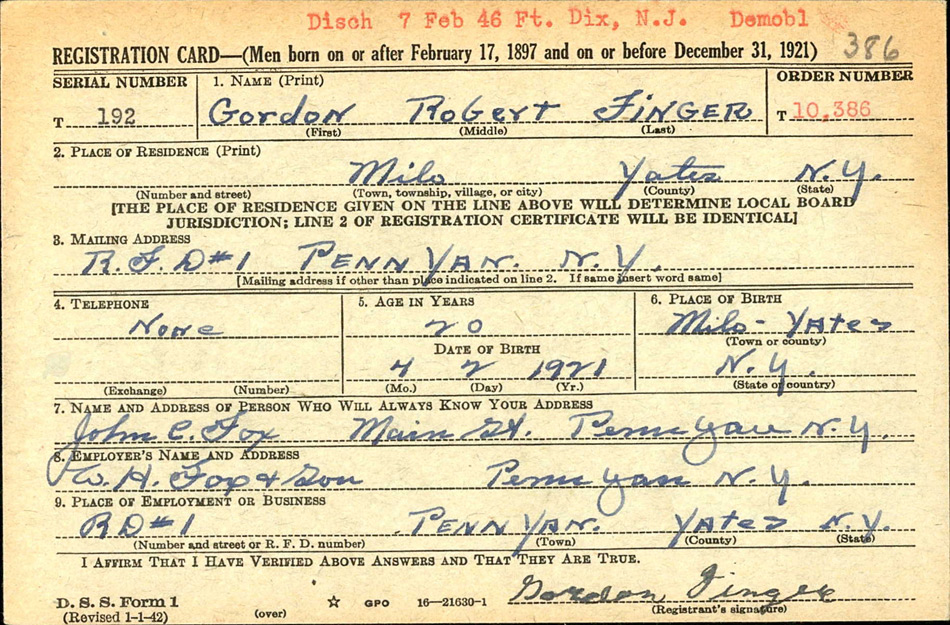 Disch 7 Feb 46 Ft. Dix, N.J. Demobl
REGISTRATION CARD—(Men born on or after February 17, 1897 and on or before December 31, 1921) 386
SERIAL NUMBER 1. NAME (Print) ORDER NUMBER
T 192 Gordon Robert FINGER T 10,386
(First) (Middle) (Last)
2. PLACE OF RESIDENCE (Print)
Milo Yates N.Y.
(Number and street) (Town, township, village, or city) (County) (State)
[THE PLACE OF RESIDENCE GIVEN ON THE LINE ABOVE WILL DETERMINE LOCAL BOARD
JURISDICTION; LINE 2 OF REGISTRATION CERTIFICATE WILL BE IDENTICAL]
3. MAILING ADDRESS
R.F.D#1 PENN YAN. N.Y.
[Mailing address if other than place indicated on line 2. If same insert word same]
4. TELEPHONE 5. AGE IN YEARS 6. PLACE OF BIRTH
None 20 Milo - Yates
DATE OF BIRTH (Town or county)
4 2 1921 N.Y.
(Exchange) (Number) (Mo.) (Day) (Yr.) (State or country)
7. NAME AND ADDRESS OF PERSON WHO WILL ALWAYS KNOW YOUR ADDRESS
John C. Fox Main St. Penn Yan N.Y.
8. EMPLOYER'S NAME AND ADDRESS
W. H. Fox & Son Penn Yan N.Y.
9. PLACE OF EMPLOYMENT OR BUSINESS
RD#1 PENN YAN. Yates N.Y.
(Number and street or R. F. D. number) (Town) (County) (State)
I AFFIRM THAT I HAVE VERIFIED ABOVE ANSWERS AND THAT THEY ARE TRUE.
Gordon Finger
D. S. S. Form 1 GPO 16—21630-1 (Registrant's signature)
(Revised 1-1-42) (over)